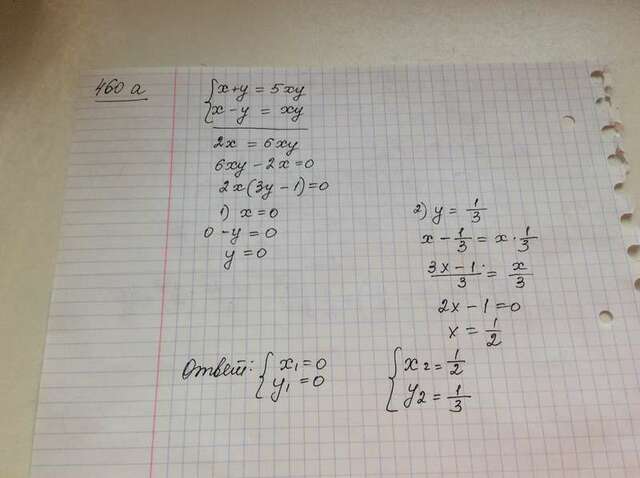 460 а
x+y = 5xy
x-y = xy
2x = 6xy
6xy - 2x = 0
2x(3y-1)=0
1) x=0
0-y=0
y=0
2) y = 1/3
x - 1/3 = x · 1/3
3x-1/3 = x/3
2x-1=0
x = 1/2
Ответ: { x₁=0
y₁=0
{ x₂=1/2
y₂=1/3